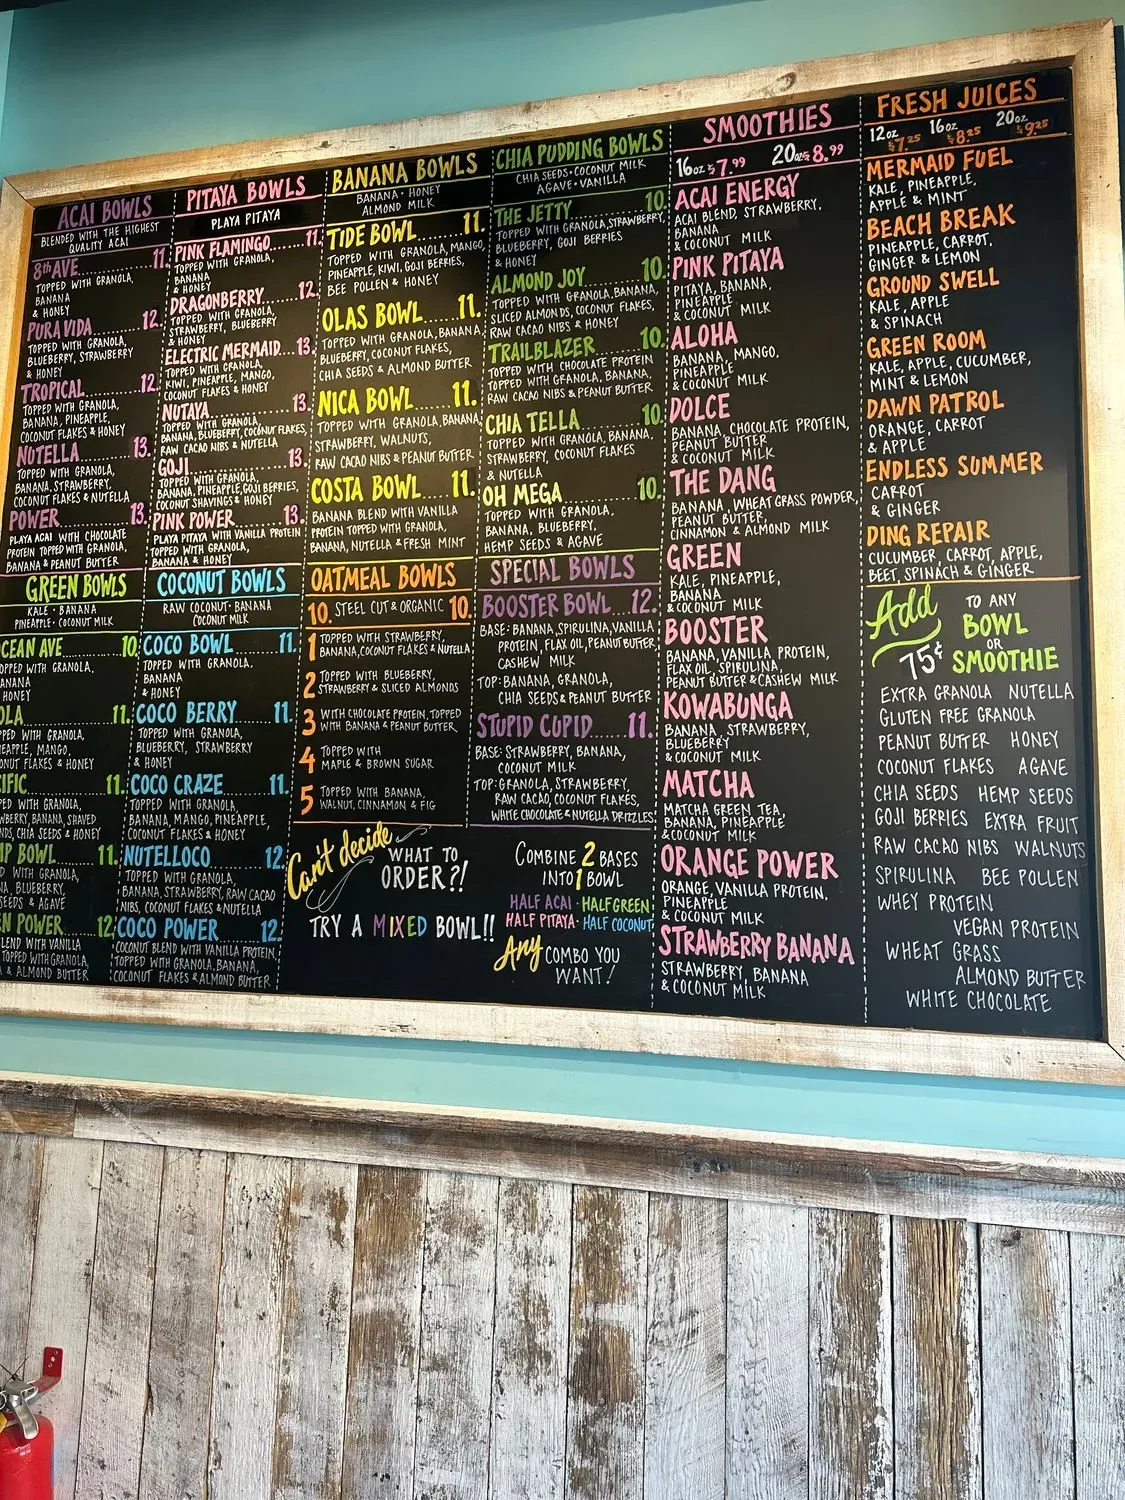 ACAI BOWLS
BLENDED WITH THE HIGHEST
QUALITY ACAI
8th AVE 11.
TOPPED WITH GRANOLA,
BANANA
& HONEY
PURA VIDA 12.
TOPPED WITH GRANOLA,
BLUEBERRY, STRAWBERRY
& HONEY
TROPICAL 12.
TOPPED WITH GRANOLA,
BANANA, PINEAPPLE,
COCONUT FLAKES & HONEY
NUTELLA 13.
TOPPED WITH GRANOLA,
BANANA, STRAWBERRY,
COCONUT FLAKES & NUTELLA
POWER 13.
PLAYA ACAI WITH CHOCOLATE
PROTEIN TOPPED WITH GRANOLA,
BANANA & PEANUT BUTTER
GREEN BOWLS
KALE · BANANA
PINEAPPLE · COCONUT MILK
CEAN AVE 10.
OPPED WITH GRANOLA,
ANANA
HONEY
OLA 11.
PPED WITH GRANOLA,
EAPPLE, MANGO,
ONUT FLAKES & HONEY
CIFIC 11.
ED WITH GRANOLA,
WBERRY, BANANA, SHAVED
NDS, CHIA SEEDS & HONEY
MP BOWL 11.
D WITH GRANOLA,
A, BLUEBERRY,
SEEDS & AGAVE
EN POWER 12.
LEND WITH VANILLA
TOPPED WITH GRANOLA,
A & ALMOND BUTTER
PITAYA BOWLS
PLAYA PITAYA
PINK FLAMINGO 11.
TOPPED WITH GRANOLA,
BANANA
& HONEY
DRAGONBERRY 12.
TOPPED WITH GRANOLA,
STRAWBERRY, BLUEBERRY
& HONEY
ELECTRIC MERMAID 13.
TOPPED WITH GRANOLA,
KIWI, PINEAPPLE, MANGO,
COCONUT FLAKES & HONEY
NUTAYA 13.
TOPPED WITH GRANOLA,
BANANA, BLUEBERRY, COCONUT FLAKES,
RAW CACAO NIBS & NUTELLA
GOJI 13.
TOPPED WITH GRANOLA,
BANANA, PINEAPPLE, GOJI BERRIES,
COCONUT SHAVINGS & HONEY
PINK POWER 13.
PLAYA PITAYA WITH VANILLA PROTEIN
TOPPED WITH GRANOLA,
BANANA & HONEY
COCONUT BOWLS
RAW COCONUT · BANANA
COCONUT MILK
COCO BOWL 11.
TOPPED WITH GRANOLA,
BANANA
& HONEY
COCO BERRY 11.
TOPPED WITH GRANOLA,
BLUEBERRY, STRAWBERRY
& HONEY
COCO CRAZE 11.
TOPPED WITH GRANOLA,
BANANA, MANGO, PINEAPPLE,
COCONUT FLAKES & HONEY
NUTELLOCO 12.
TOPPED WITH GRANOLA,
BANANA, STRAWBERRY, RAW CACAO
NIBS, COCONUT FLAKES & NUTELLA
COCO POWER 12.
COCONUT BLEND WITH VANILLA PROTEIN,
TOPPED WITH GRANOLA, BANANA,
COCONUT FLAKES & ALMOND BUTTER
BANANA BOWLS
BANANA · HONEY
ALMOND MILK
TIDE BOWL 11.
TOPPED WITH GRANOLA, MANGO,
PINEAPPLE, KIWI, GOJI BERRIES,
BEE POLLEN & HONEY
OLAS BOWL 11.
TOPPED WITH GRANOLA, BANANA,
BLUEBERRY, COCONUT FLAKES,
CHIA SEEDS & ALMOND BUTTER
NICA BOWL 11.
TOPPED WITH GRANOLA, BANANA,
STRAWBERRY, WALNUTS,
RAW CACAO NIBS & PEANUT BUTTER
COSTA BOWL 11.
BANANA BLEND WITH VANILLA
PROTEIN TOPPED WITH GRANOLA,
BANANA, NUTELLA & FRESH MINT
OATMEAL BOWLS
10. STEEL CUT & ORGANIC 10.
1 TOPPED WITH STRAWBERRY,
BANANA, COCONUT FLAKES & NUTELLA
2 TOPPED WITH BLUEBERRY,
STRAWBERRY & SLICED ALMONDS
3 WITH CHOCOLATE PROTEIN, TOPPED
WITH BANANA & PEANUT BUTTER
4 TOPPED WITH
MAPLE & BROWN SUGAR
5 TOPPED WITH BANANA,
WALNUT, CINNAMON & FIG
CHIA PUDDING BOWLS
CHIA SEEDS · COCONUT MILK
AGAVE · VANILLA
THE JETTY 10.
TOPPED WITH GRANOLA, STRAWBERRY,
BLUEBERRY, GOJI BERRIES
& HONEY
ALMOND JOY 10.
TOPPED WITH GRANOLA, BANANA,
SLICED ALMONDS, COCONUT FLAKES,
RAW CACAO NIBS & HONEY
TRAILBLAZER 10.
TOPPED WITH CHOCOLATE PROTEIN
TOPPED WITH GRANOLA, BANANA,
RAW CACAO NIBS & PEANUT BUTTER
CHIA TELLA 10.
TOPPED WITH GRANOLA, BANANA,
STRAWBERRY, COCONUT FLAKES
& NUTELLA
OH MEGA 10.
TOPPED WITH GRANOLA,
BANANA, BLUEBERRY,
HEMP SEEDS & AGAVE
SPECIAL BOWLS
BOOSTER BOWL 12.
BASE: BANANA, SPIRULINA, VANILLA
PROTEIN, FLAX OIL, PEANUT BUTTER,
CASHEW MILK
TOP: BANANA, GRANOLA,
CHIA SEEDS & PEANUT BUTTER
STUPID CUPID 11.
BASE: STRAWBERRY, BANANA,
COCONUT MILK
TOP: GRANOLA, STRAWBERRY,
RAW CACAO, COCONUT FLAKES,
WHITE CHOCOLATE & NUTELLA DRIZZLES
Can't decide
WHAT TO
ORDER?!
TRY A MIXED BOWL!!
COMBINE 2 BASES
INTO 1 BOWL
HALF ACAI · HALF GREEN
HALF PITAYA · HALF COCONUT
Any COMBO YOU
WANT!
SMOOTHIES
16oz $7.99 20oz $8.99
ACAI ENERGY
ACAI BLEND, STRAWBERRY,
BANANA
& COCONUT MILK
PINK PITAYA
PITAYA, BANANA,
PINEAPPLE
& COCONUT MILK
ALOHA
BANANA, MANGO,
PINEAPPLE
& COCONUT MILK
DOLCE
BANANA, CHOCOLATE PROTEIN,
PEANUT BUTTER
& COCONUT MILK
THE DANG
BANANA, WHEAT GRASS POWDER,
PEANUT BUTTER,
CINNAMON & ALMOND MILK
GREEN
KALE, PINEAPPLE,
BANANA
& COCONUT MILK
BOOSTER
BANANA, VANILLA PROTEIN,
FLAX OIL, SPIRULINA,
PEANUT BUTTER & CASHEW MILK
KOWABUNGA
BANANA, STRAWBERRY,
BLUEBERRY
& COCONUT MILK
MATCHA
MATCHA GREEN TEA,
BANANA, PINEAPPLE
& COCONUT MILK
ORANGE POWER
ORANGE, VANILLA PROTEIN,
PINEAPPLE
& COCONUT MILK
STRAWBERRY BANANA
STRAWBERRY, BANANA
& COCONUT MILK
FRESH JUICES
12oz $7.25 16oz $8.25 20oz $9.25
MERMAID FUEL
KALE, PINEAPPLE,
APPLE & MINT
BEACH BREAK
PINEAPPLE, CARROT,
GINGER & LEMON
GROUND SWELL
KALE, APPLE
& SPINACH
GREEN ROOM
KALE, APPLE, CUCUMBER,
MINT & LEMON
DAWN PATROL
ORANGE, CARROT
& APPLE
ENDLESS SUMMER
CARROT
& GINGER
DING REPAIR
CUCUMBER, CARROT, APPLE,
BEET, SPINACH & GINGER
Add TO ANY
BOWL
OR
75¢ SMOOTHIE
EXTRA GRANOLA NUTELLA
GLUTEN FREE GRANOLA
PEANUT BUTTER HONEY
COCONUT FLAKES AGAVE
CHIA SEEDS HEMP SEEDS
GOJI BERRIES EXTRA FRUIT
RAW CACAO NIBS WALNUTS
SPIRULINA BEE POLLEN
WHEY PROTEIN
VEGAN PROTEIN
WHEAT GRASS
ALMOND BUTTER
WHITE CHOCOLATE